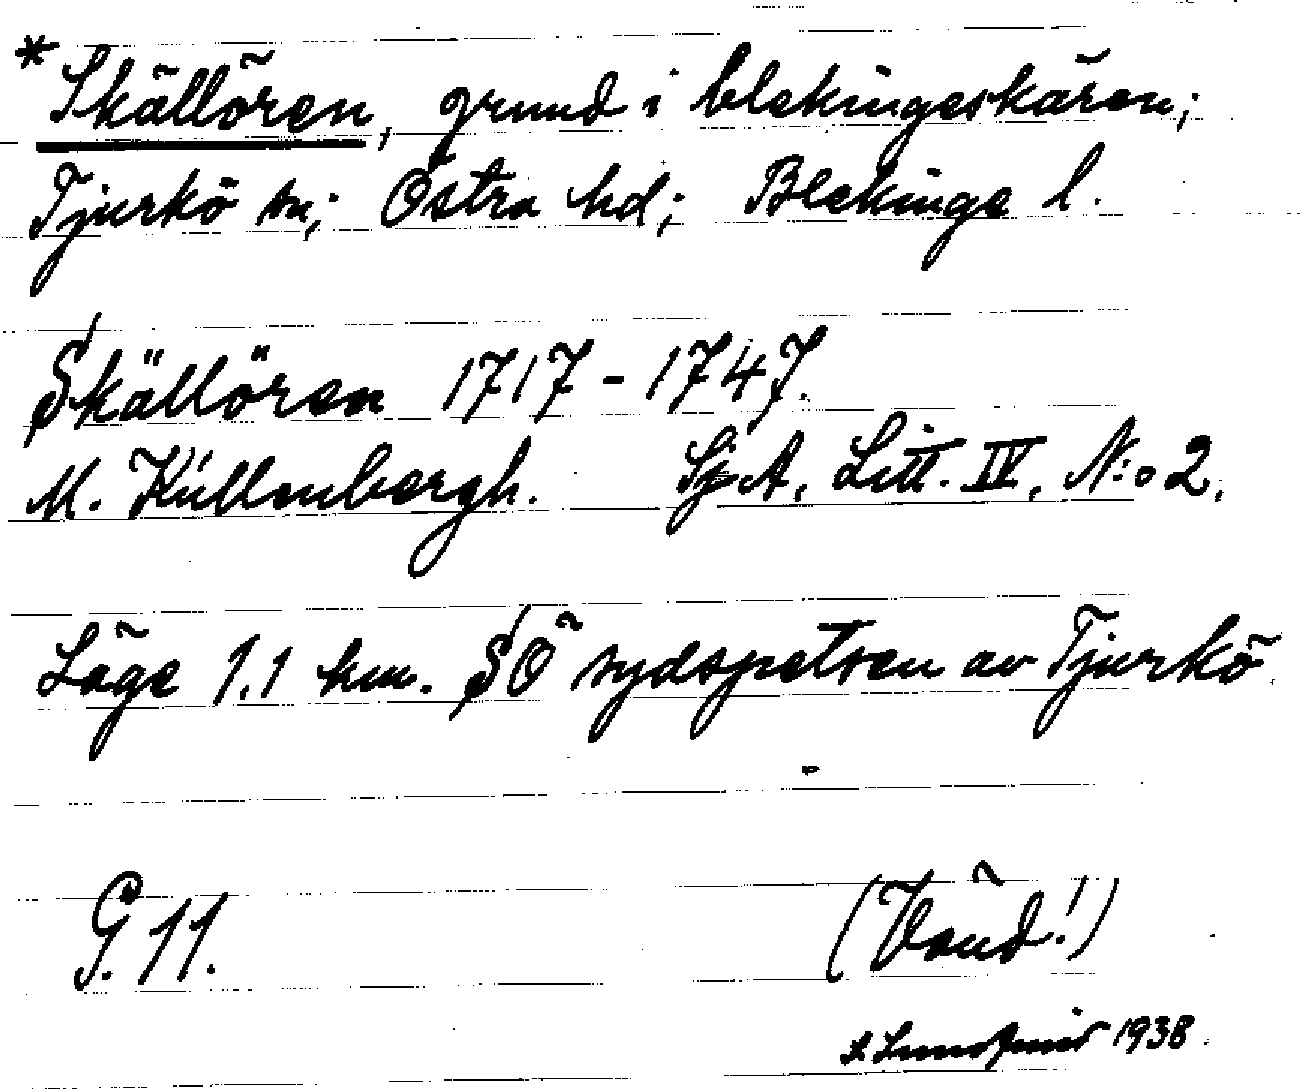 *Skällören, grund i blekingeskären;
Tjurkö sn; Östra hd; Blekinge l.
Skällören 1717-1747.
M. Küllenbergh. Sj.A, Litt. IV, N:o 2.
Läge 1.1 km. SÖ sydspetsen av Tjurkö.
G. 11. (Vänd!)
1938